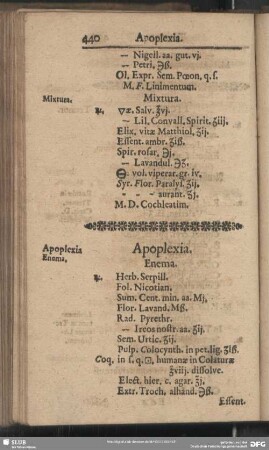 440 Apoplexia.
— Nigell. aa. gut. vj.
— Petri, ℈ß.
Ol. Expr. Sem. Pœon. q. s.
M. F. Linimentum.
Mixtura.
Mixtura.
℞. ▽æ. Salv. ℥vj.
— Lil. Convall. Spirit. ℥iij.
Elix. vitæ Matthiol. ʒij.
Essent. ambr. ʒiß.
Spir. rosar, ℈j.
— Lavandul. ℈ß.
vol. viperar. gr. iv.
Syr. Flor. Paralys. ℥ij.
- - aurant. ℥j.
M. D. Cochleatim.
Apoplexia
Enema.
Apoplexia.
Enema.
℞. Herb. Serpill.
Fol. Nicotian.
Sum. Cent. min. aa. Mj,
Flor. Lavand. Mß.
Rad. Pyrethr.
— Ireos nostr. aa. ʒij.
Sem. Urtic. ʒij.
Pulp. Colocynth. in pet. lig. ʒiß.
Coq. in s. q. humanæ in Colaturæ
℥viij. dissolve.
Elect. hier. c. agar. ℥j.
Extr. Troch, alhand. ℈ß.
Essent.
SLUB